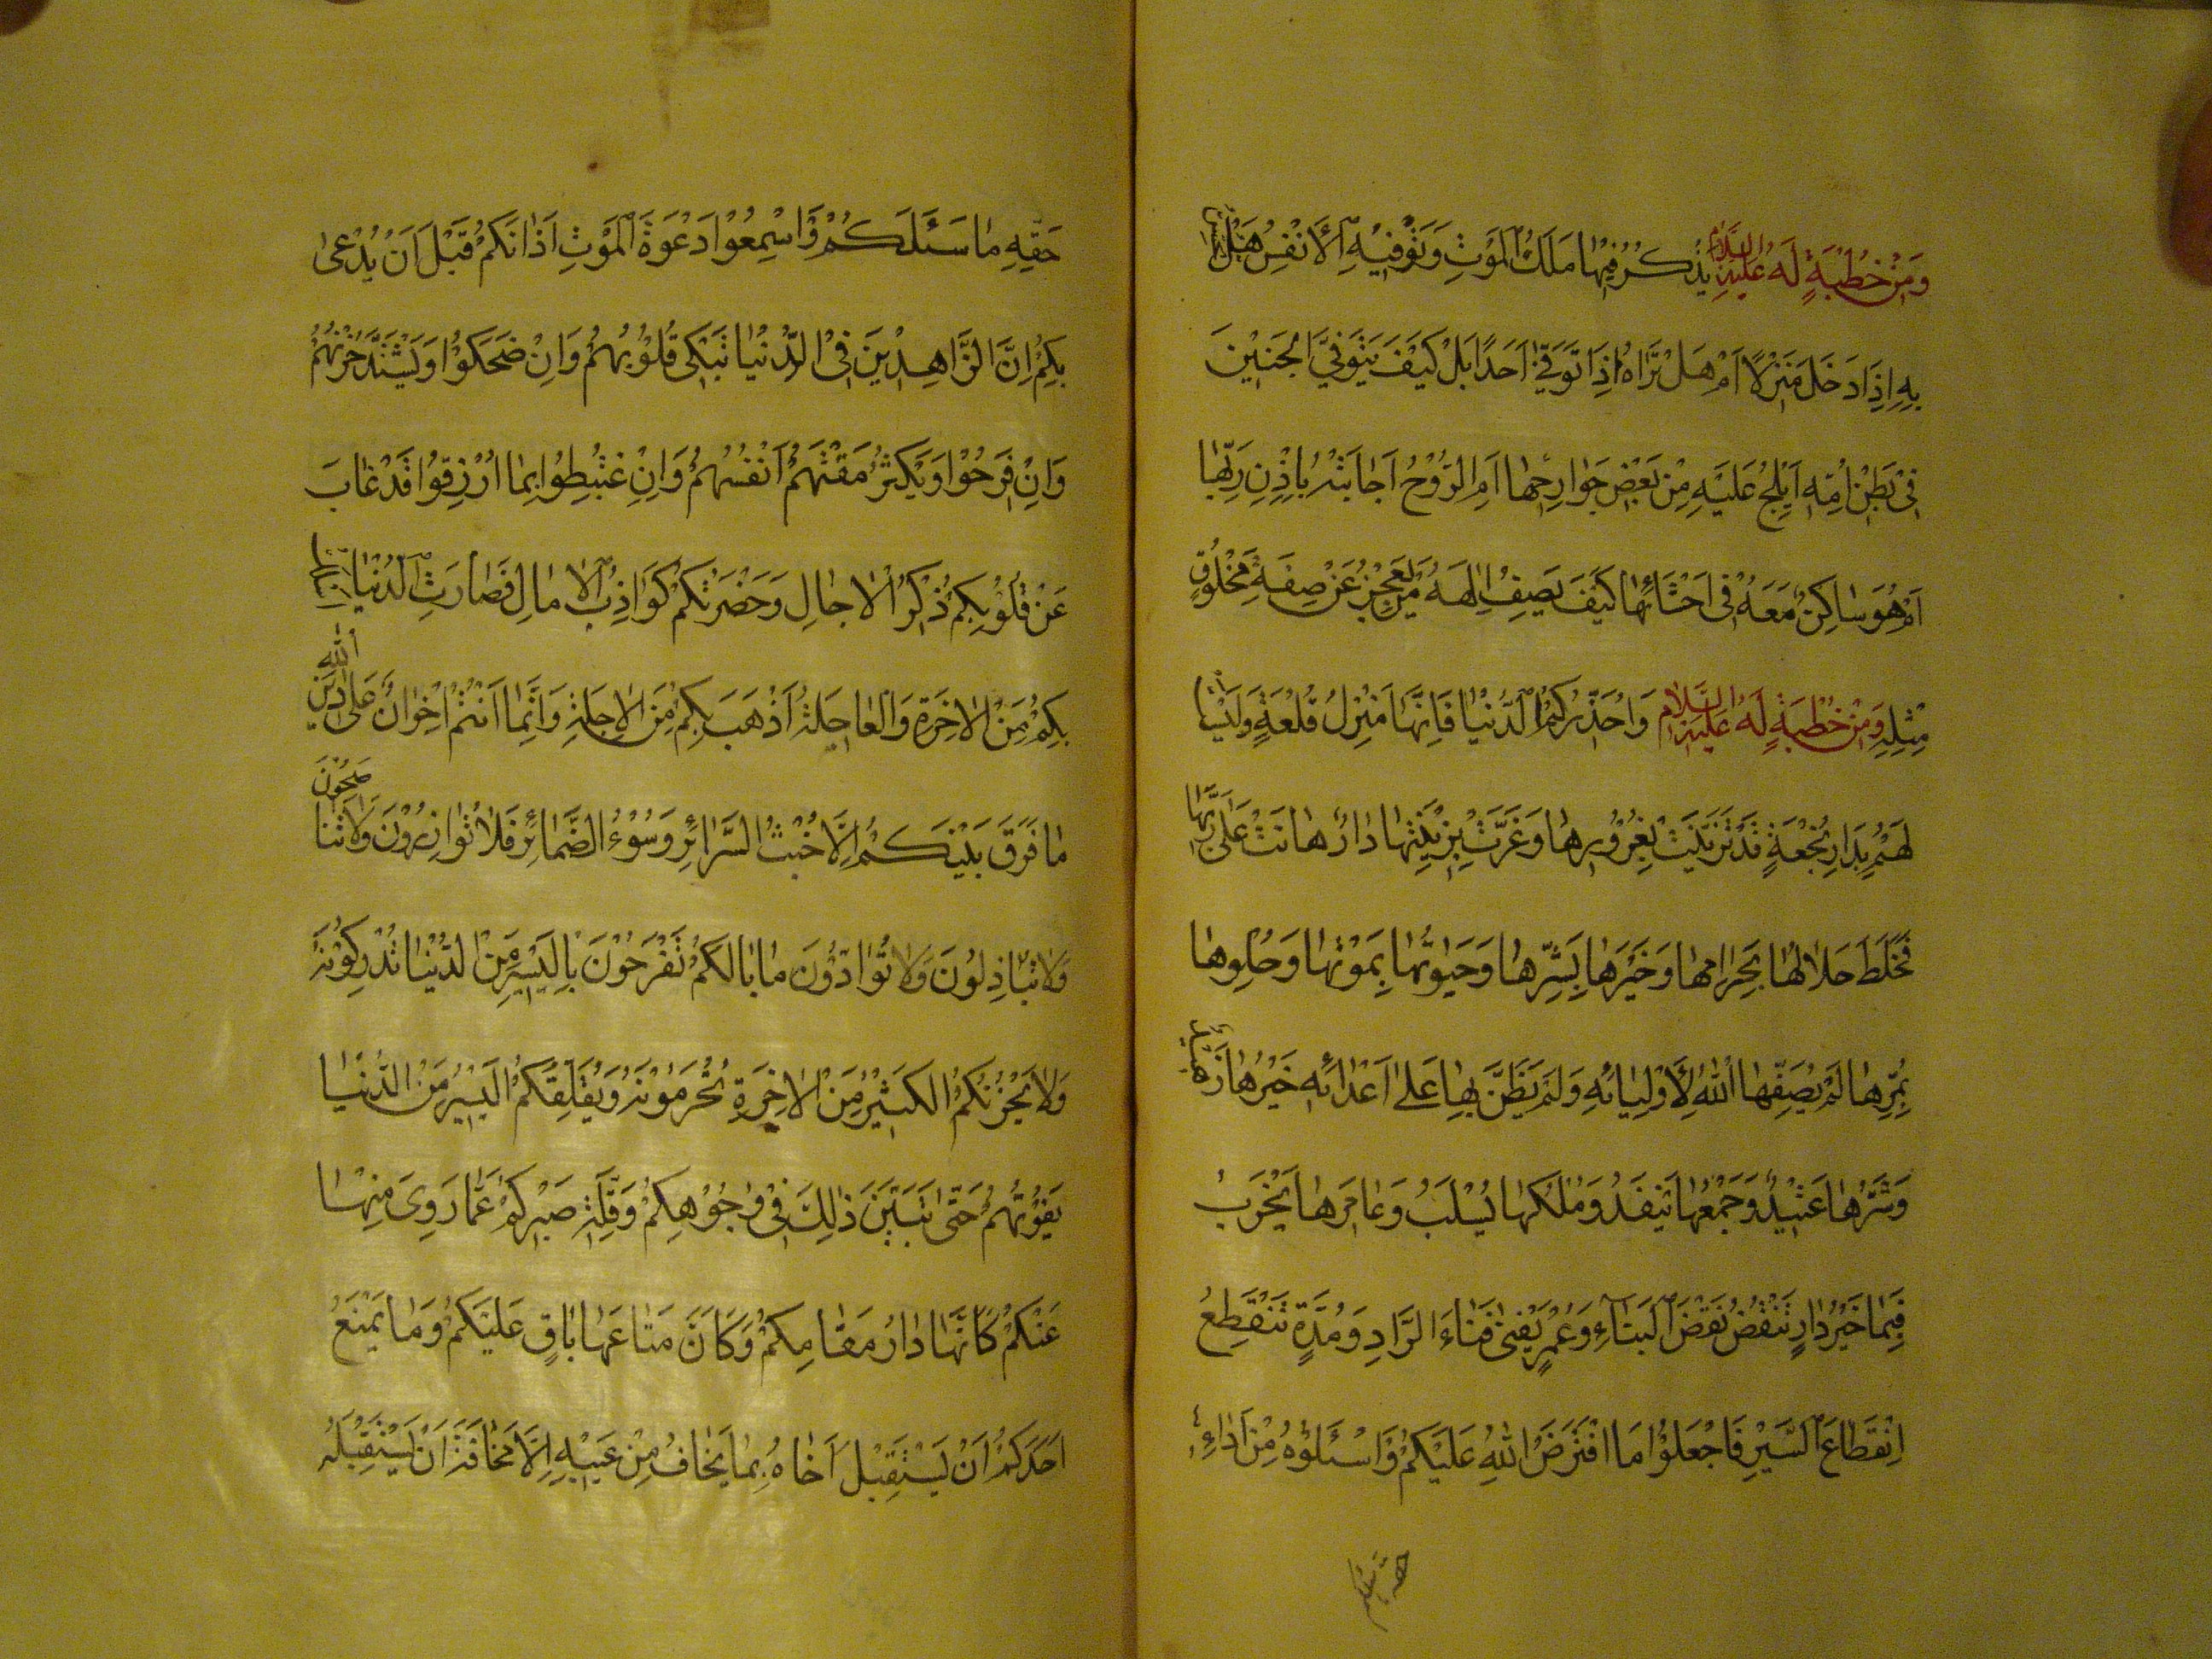 وَمِنْ خُطْبَةٍ لَهُ عَلَيْهِ السَّلَامُ يَذْكُرُ فِيهَا مَلَكَ الْمَوْتِ وَتَوَفِّيهِ الْأَنْفُسَ هَلْ
بِهِ اِذَا دَخَلَ مَنْزِلًا اَمْ هَلْ تَرَاهُ اِذَا تَوَفّٰى اَحَدًا بَلْ كَيْفَ يَتَوَفَّى الْجَنِيْنَ
فِيْ بَطْنِ اُمِّهِ اَيَلِجُ عَلَيْهِ مِنْ بَعْضِ جَوَارِحِهَا اَمِ الرُّوْحُ اَجَابَتْهُ بِاِذْنِ رَبِّهَا
اَمْ هُوَ سَاكِنٌ مَعَهُ فِى اَحْشَائِهَا كَيْفَ يَصِفُ اِلٰهَهُ مَنْ يَعْجِزُ عَنْ صِفَةِ مَخْلُوْقٍ
مِثْلِهِ وَمِنْ خُطْبَةٍ لَهُ عَلَيْهِ السَّلَامُ وَاُحَذِّرُكُمُ الدُّنْيَا فَاِنَّهَا مَنْزِلُ قُلْعَةٍ وَلَيْسَتْ
بِدَارِ نُجْعَةٍ قَدْ تَزَيَّنَتْ بِغُرُوْرِهَا وَغَرَّتْ بِزِيْنَتِهَا دَارٌ هَانَتْ عَلٰى رَبِّهَا
فَخَلَطَ حَلَالَهَا بِحَرَامِهَا وَخَيْرَهَا بِشَرِّهَا وَحَيٰوتَهَا بِمَوْتِهَا وَحُلْوَهَا
بِمُرِّهَا لَمْ يُصْفِهَا اللّٰهُ لِاَوْلِيَائِهِ وَلَمْ يَضَنَّ بِهَا عَلٰى اَعْدَائِهِ خَيْرُهَا زَهِيْدٌ
وَشَرُّهَا عَتِيْدٌ وَجَمْعُهَا يَنْفَدُ وَمُلْكُهَا يُسْلَبُ وَعَامِرُهَا يَخْرَبُ
فَمَا خَيْرُ دَارٍ تُنْقَضُ نَقْضَ الْبِنَاءِ وَعُمْرٍ يَفْنٰى فَنَاءَ الزَّادِ وَمُدَّةٍ تَنْقَطِعُ
اِنْقِطَاعَ السَّيْرِ فَاجْعَلُوْا مَا افْتَرَضَ اللهُ عَلَيْكُمْ وَاسْئَلُوْهُ مِنْ اَدَاءِ
حَقِّهِ مَا سَئَلَكُمْ وَاَسْمِعُوْا دَعْوَةَ الْمَوْتِ اٰذَانَكُمْ قَبْلَ اَنْ يُدْعٰى
بِكُمْ اِنَّ الزَّاهِدِيْنَ فِى الدُّنْيَا تَبْكِى قُلُوْبُهُمْ وَاِنْ ضَحِكُوْا وَيَشْتَدُّ حُزْنُهُمْ
وَاِنْ فَرِحُوْا وَيَكْثُرُ مَقْتُهُمْ اَنْفُسَهُمْ وَاِنِ غْتُبِطُوْا بِمَا اُرْزِقُوْا قَدْ غَابَ
عَنْ قُلُوْبِكُمْ ذِكْرُ الْاٰجَالِ وَحَضَرَتْكُمْ كَوَاذِبُ الْاٰمَالِ فَصَارَتِ الدُّنْيَا
بِكُمْ مِنَ الْاٰخِرَةِ وَالْعَاجِلَةُ اَذْهَبَ بِكُمْ مِنَ الْاٰجِلَةِ وَاِنَّمَا اَنْتُمْ اِخْوَانٌ عَلٰى دِيْنِ اللّٰهِ
مَا فَرَّقَ بَيْنَكُمْ اِلَّا خُبْثُ السَّرَائِرِ وَسُوْءُ الضَّمَائِرِ فَلَا تَوَازَرُوْنَ وَلَا تَنَاصَحُوْنَ
وَلَا تَبَاذَلُوْنَ وَلَا تَوَادُّوْنَ مَا بَالُكُمْ تَفْرَحُوْنَ بِالْيَسِيْرِ مِنَ الدُّنْيَا تُدْرِكُوْنَهُ
وَلَا يَحْزُنُكُمُ الْكَثِيْرُ مِنَ الْاٰخِرَةِ تُحْرَمُوْنَهُ وَيُقْلِقُكُمُ الْيَسِيْرُ مِنَ الدُّنْيَا
يَفُوْتُهُمْ حَتّٰى يَتَبَيَّنَ ذٰلِكَ فِى وُجُوْهِكُمْ وَقِلَّةِ صَبْرِكُمْ عَمَّا زَوِىَ مِنْهَا
عَنْكُمْ كَاَنَّهَا دَارُ مَقَامِكُمْ وَكَاَنَّ مَتَاعَهَا بَاقٍ عَلَيْكُمْ وَمَا يَمْنَعُ
اَحَدَكُمْ اَنْ يَسْتَقْبِلَ اَخَاهُ بِمَا يَخَافُ مِنْ عَيْبِهِ اِلَّا مَخَافَةَ اَنْ يَسْتَقْبِلَهُ